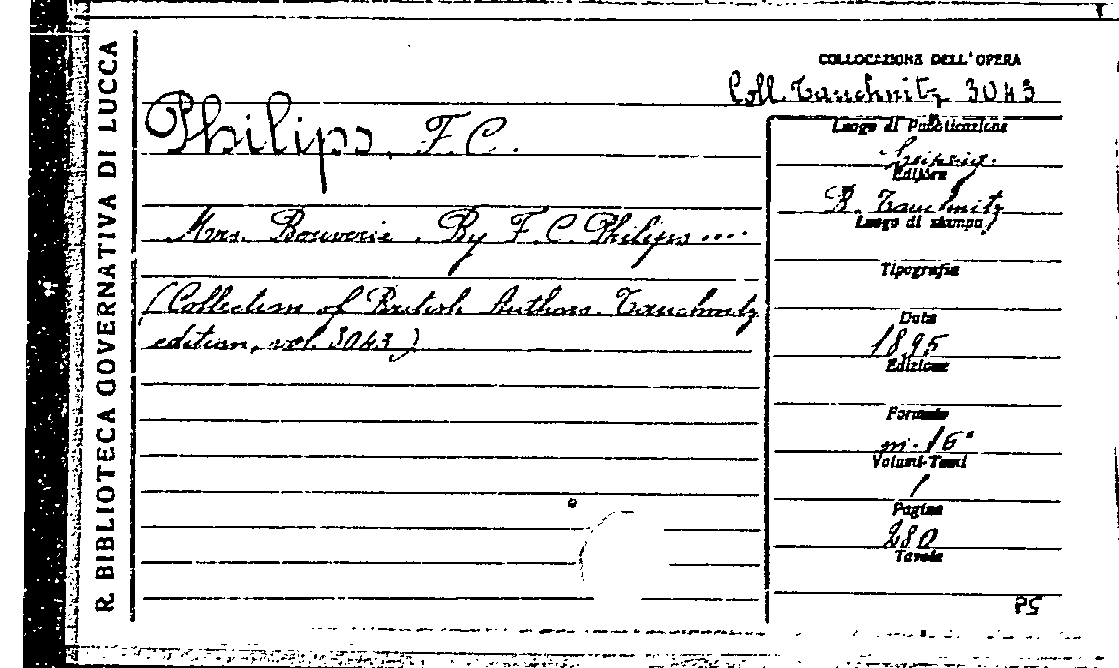 R. BIBLIOTECA GOVERNATIVA DI LUCCA
COLLOCAZIONE DELL'OPERA
Coll. Tauchnitz 3043
Philips, F. C.
Mrs. Bouverie. By F. C. Philips ....
(Collection of British Authors. Tauchnitz
edition, vol. 3043)
Luogo di Pubblicazione
Leipzig.
Editore
B. Tauchnitz
Luogo di stampa
Tipografia
Data
1895
Edizione
Formato
in-16°
Volumi-Tomi
1
Pagine
280
Tavole